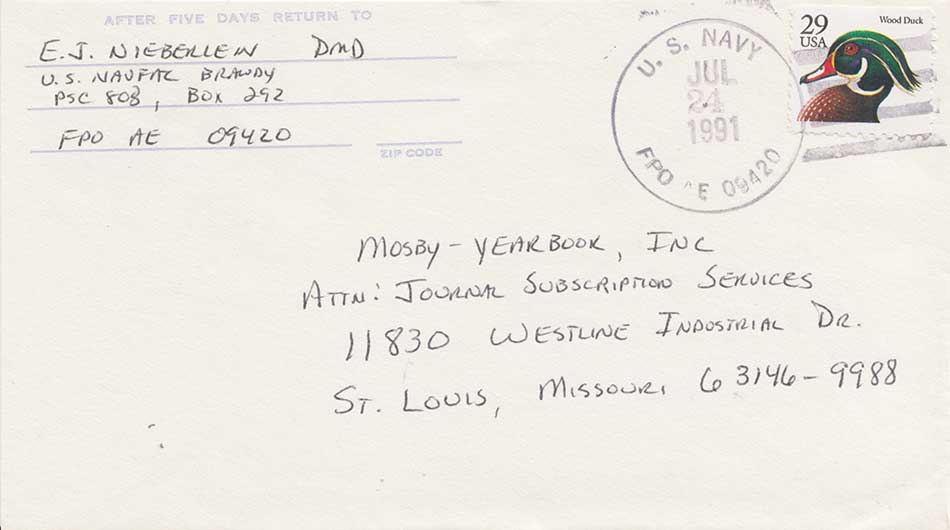 AFTER FIVE DAYS RETURN TO
E. J. NIEBERLEIN DMD
U.S. NAVFAC BRAWDY
PSC 808, BOX 292
FPO AE 09420
ZIP CODE
U. S. NAVY
JUL
24
1991
FPO AE 09420
29
USA
Wood Duck
MOSBY - YEARBOOK, INC
ATTN: JOURNAL SUBSCRIPTION SERVICES
11830 WESTLINE INDUSTRIAL DR.
ST. LOUIS, MISSOURI 63146-9988